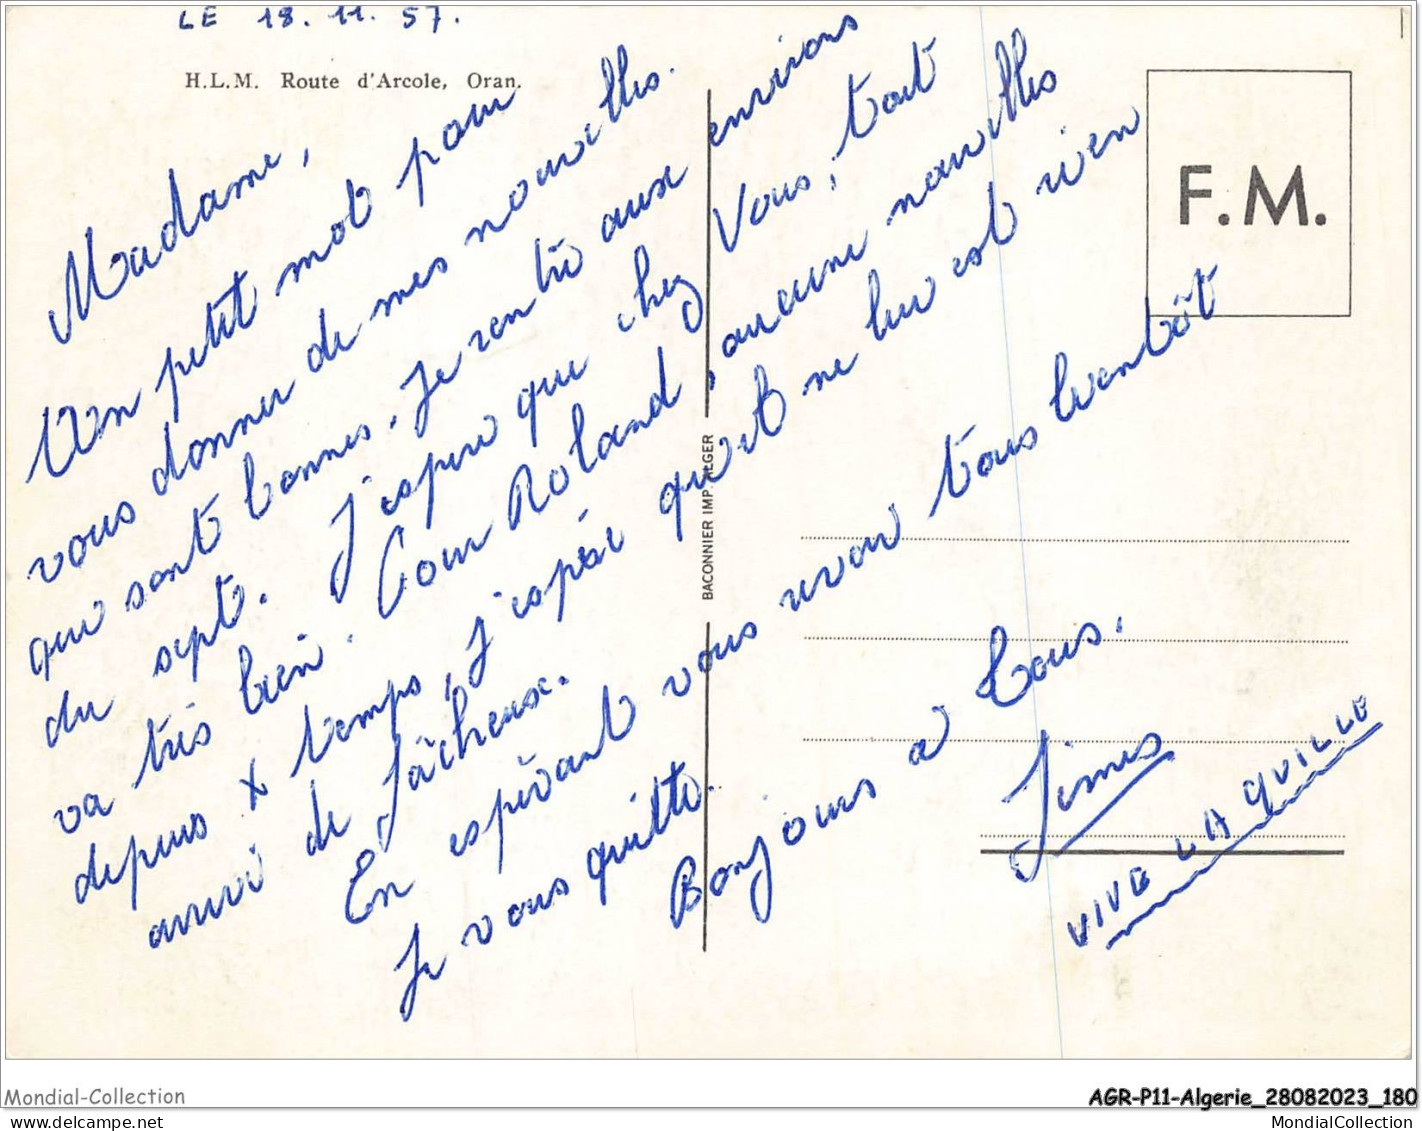 LE 18.11.57.
H.L.M. Route d'Arcole, Oran.
Madame,
Un petit mot pour
vous donner de mes nouvelles.
qui sont bonnes. Je rentre aux environs
du sept. J'espère que chez vous, tout
va très bien. Pour Roland, aucune nouvelles
depuis x temps, j'espère qu'il ne lui est rien
arrivé de fâcheux.
En espérant vous revoir tous bientôt
Je vous quitte.
Bonjours a tous.
VIVE LA QUILLE
F.M.
BACONNIER IMP. ALGER
Mondial-Collection
AGR-P11-Algerie_28082023_180
MondialCollection